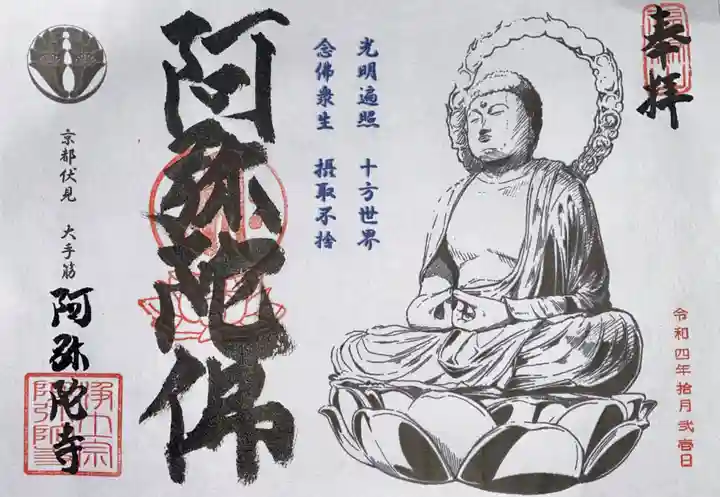 奉拝
令和四年拾月弐壱日
光明遍照　十方世界
念佛衆生　摂取不捨
阿弥陀佛
京都伏見　大手筋
阿弥陀寺
浄土宗